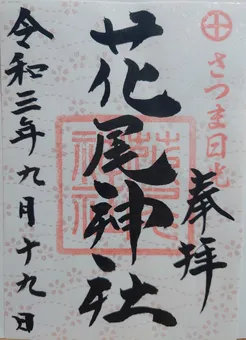 さつま日光
奉拝
花尾神社
令和三年九月十九日
花尾神社